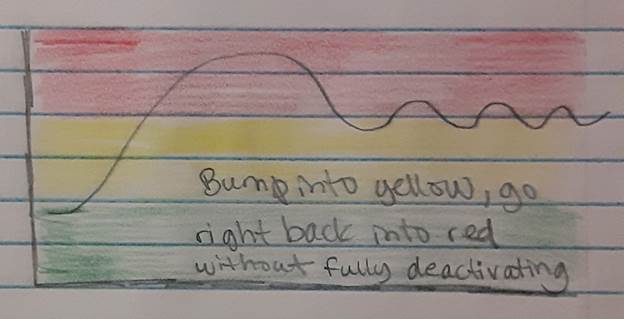 Bump into yellow, go
right back into red
without fully deactivating